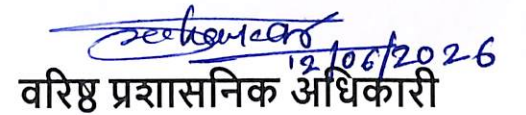 12/06/2026
वरिष्ठ प्रशासनिक अधिकारी